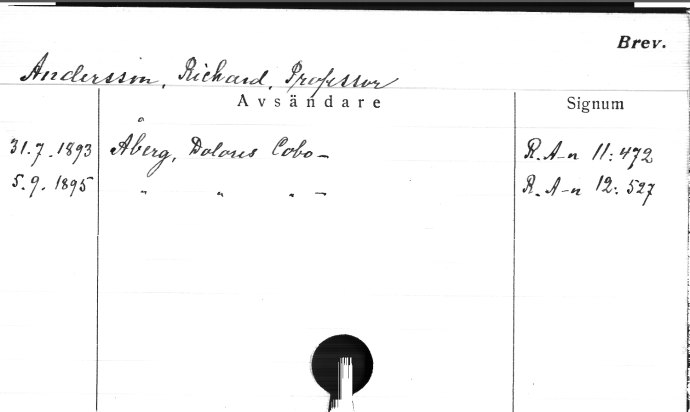 Brev.
Andersson, Richard, Professor
Avsändare Signum
31.7.1893 Åberg, Dolores Cobo- R.A-n 11:472
5.9.1895 " " " - R.A-n 12:527